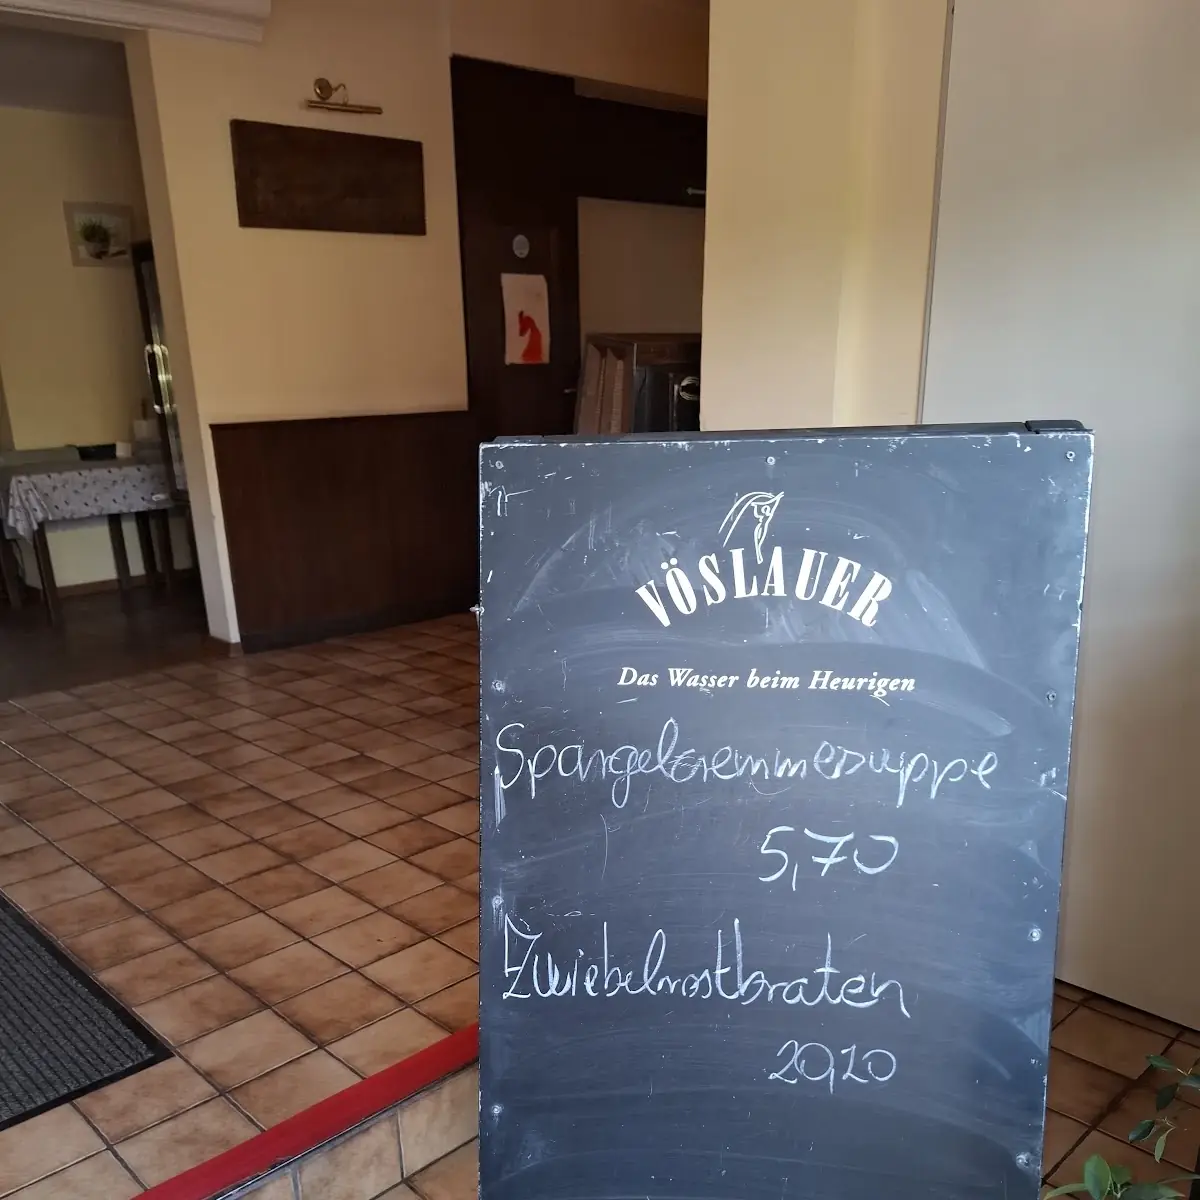 VÖSLAUER
Das Wasser beim Heurigen
Spargelcremmesuppe
5,70
Zwiebelrostbraten
20,10